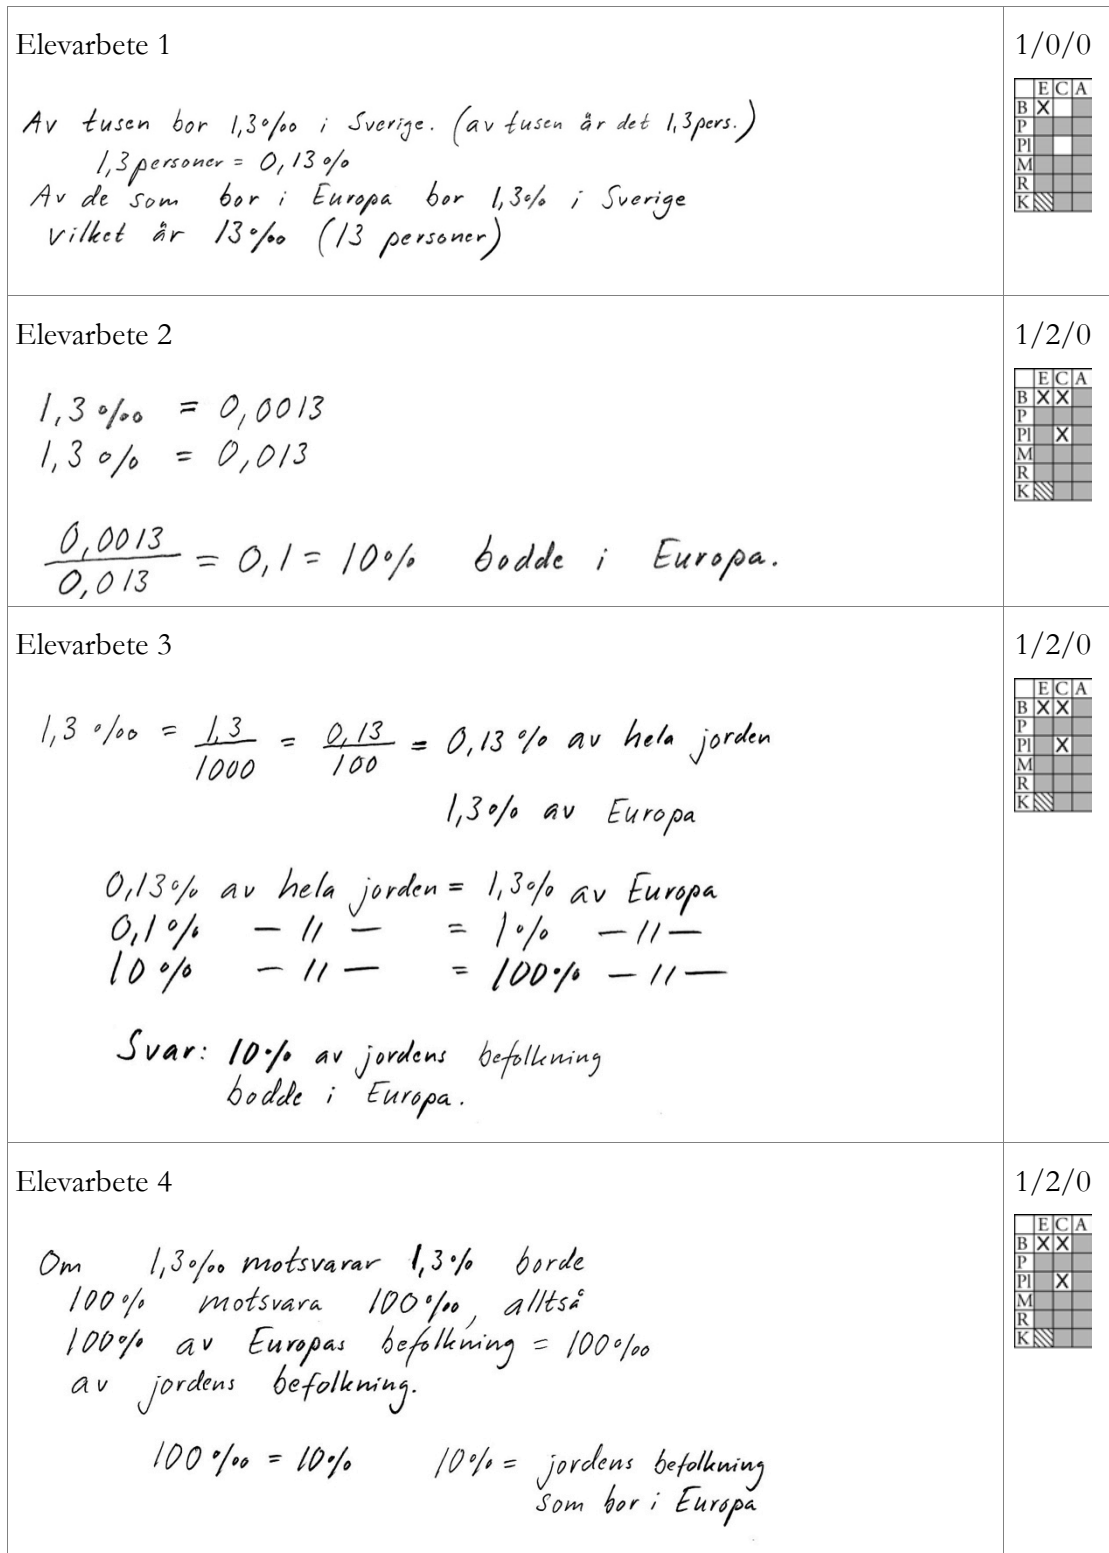 Elevarbete 1
1/0/0
E C A
B X
P
Pl
M
R
K
Av tusen bor 1,3‰ i Sverige. (av tusen är det 1,3pers.)
1,3 personer = 0,13 %
Av de som bor i Europa bor 1,3% i Sverige
vilket är 13‰ (13 personer)
Elevarbete 2
1/2/0
E C A
B X X
P
Pl X
M
R
K
1,3 ‰ = 0,0013
1,3 % = 0,013
0,0013
0,013 = 0,1 = 10% bodde i Europa.
Elevarbete 3
1/2/0
E C A
B X X
P
Pl X
M
R
K
1,3 ‰ = 1,3/1000 = 0,13/100 = 0,13 % av hela jorden
1,3% av Europa
0,13% av hela jorden = 1,3% av Europa
0,1% — 〃 — = 1% — 〃 —
10 % — 〃 — = 100% — 〃 —
Svar: 10% av jordens befolkning
bodde i Europa.
Elevarbete 4
1/2/0
E C A
B X X
P
Pl X
M
R
K
Om 1,3‰ motsvarar 1,3% borde
100% motsvara 100‰, alltså
100% av Europas befolkning = 100‰
av jordens befolkning.
100 ‰ = 10% 10% = jordens befolkning
som bor i Europa